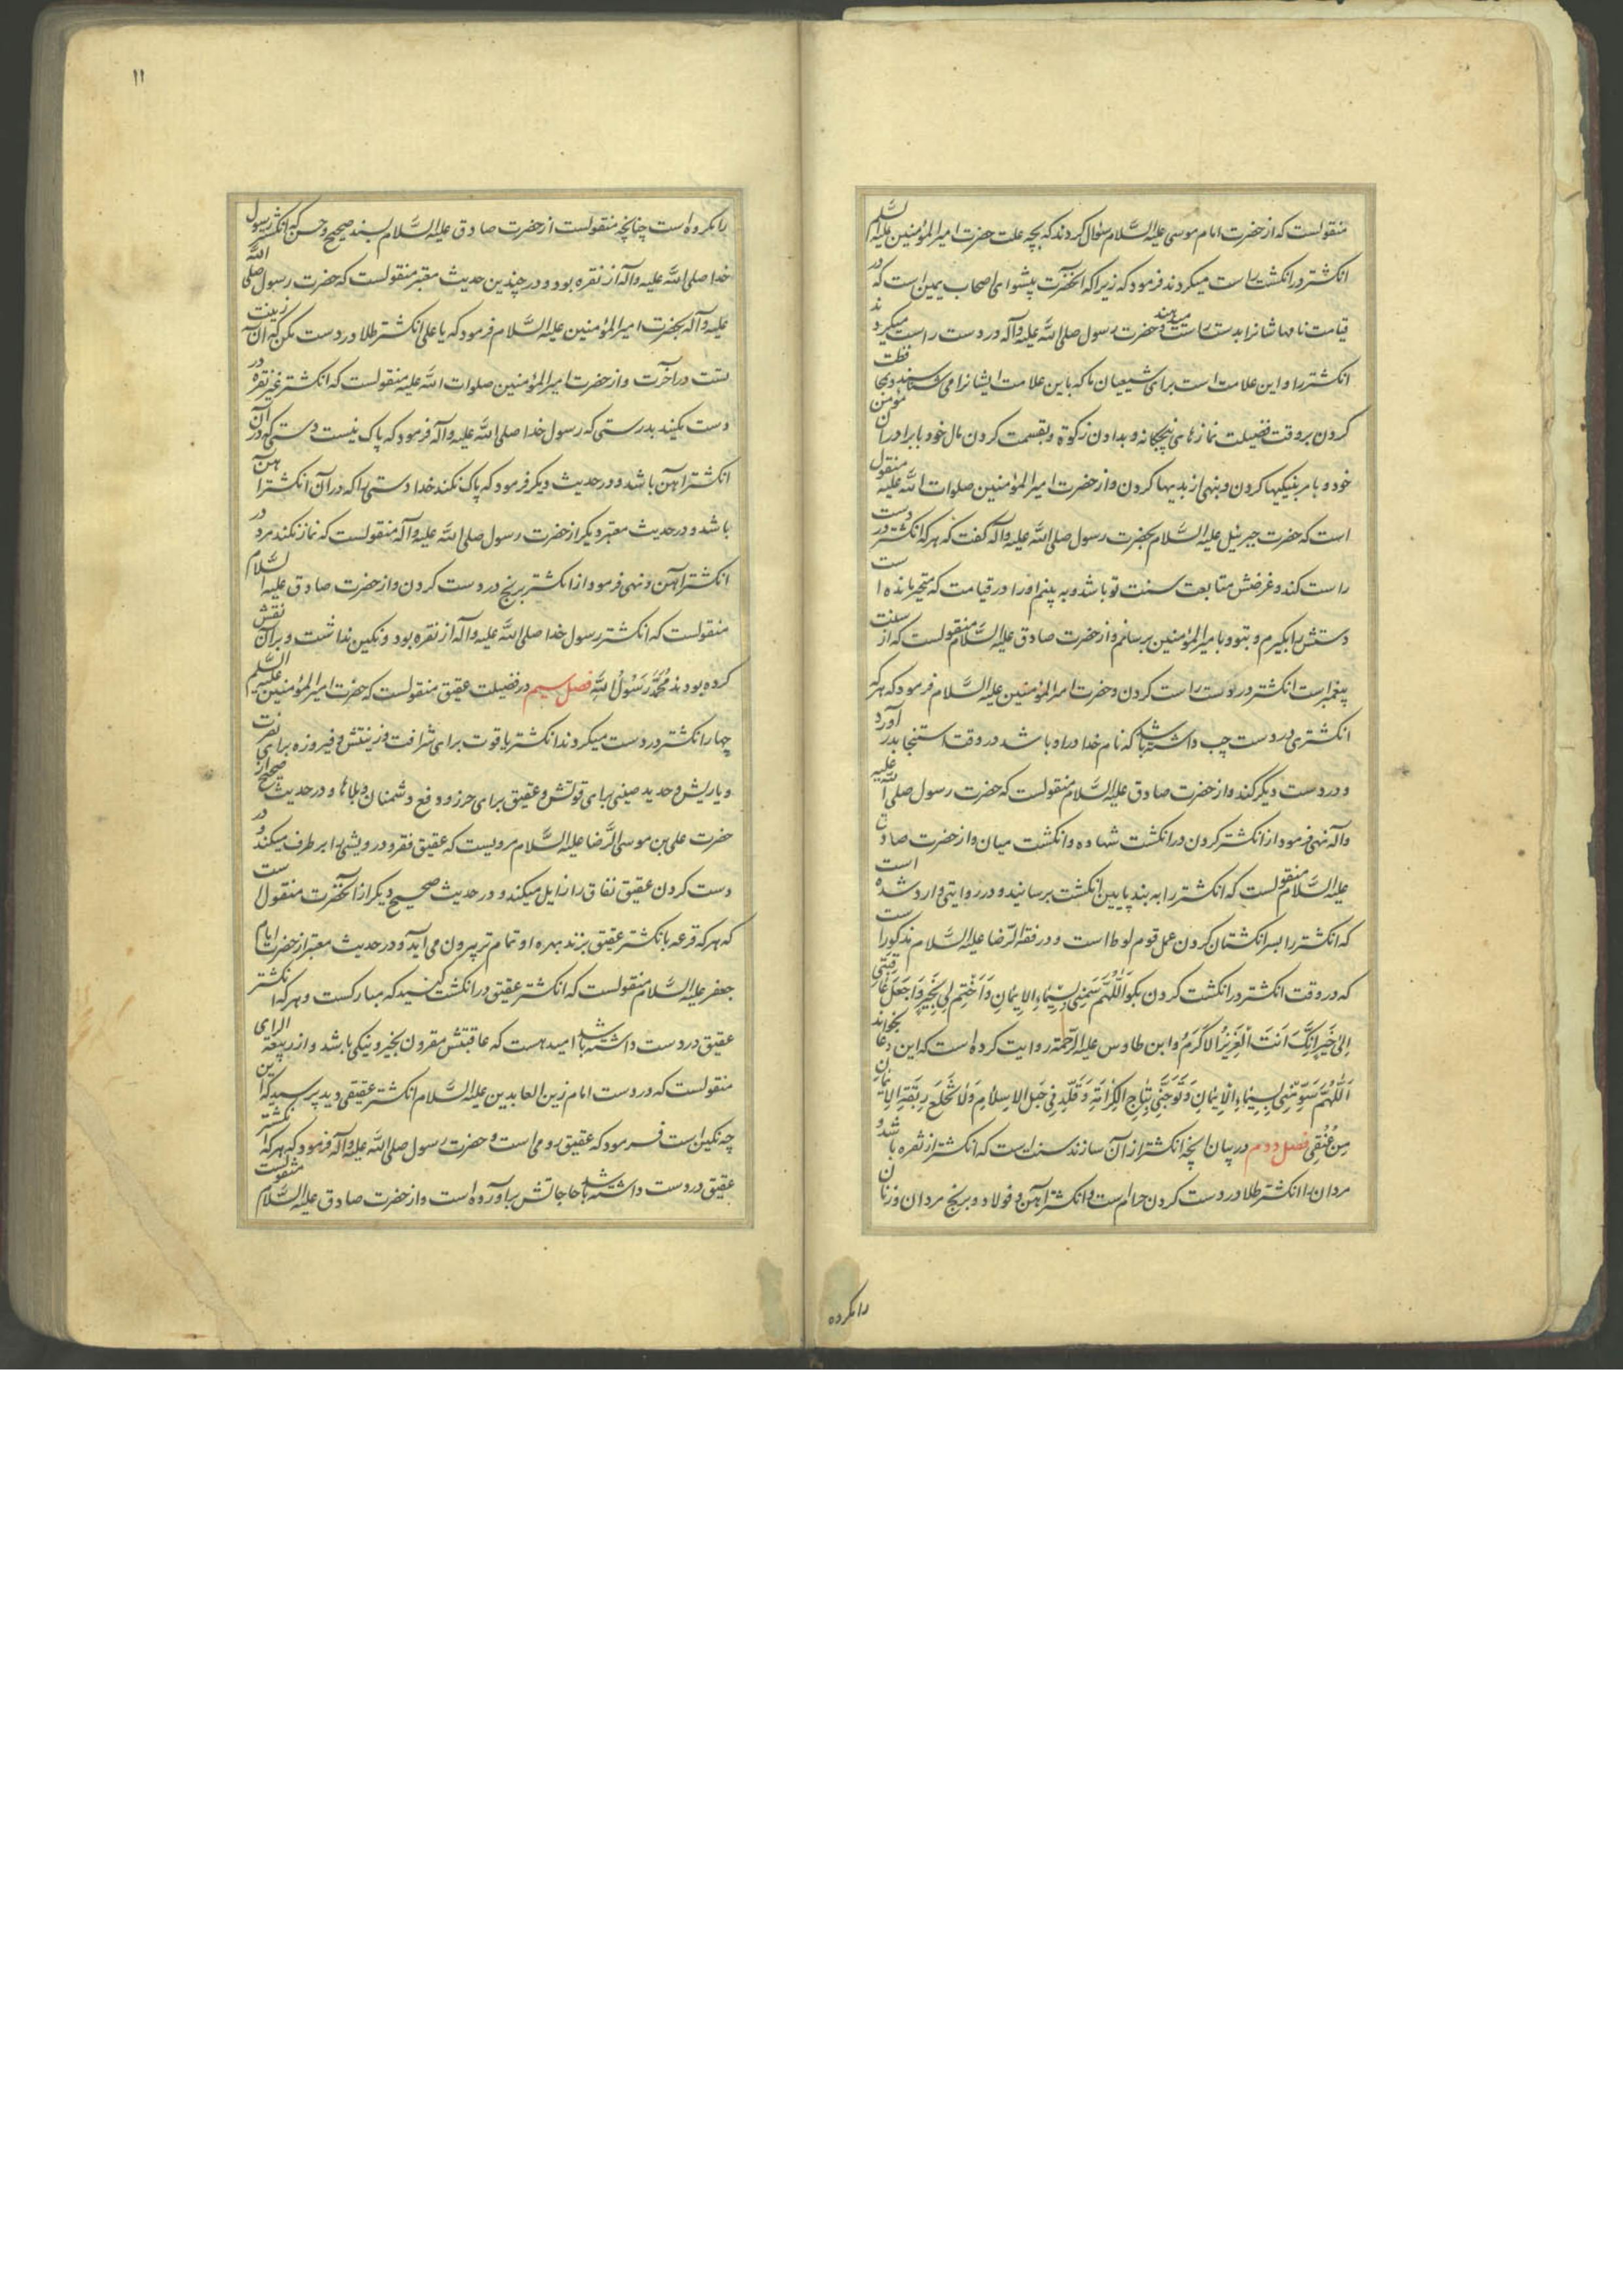 منقولست که از حضرت امام موسی علیه السّلام سؤال کردند که بچه علت حضرت امیرالمؤمنین علیه السّلم
انکشتر در انکشت راست میکردند فرمود که زیرا که انحضرت پیشوای اصحاب یمین است که در
قیامت نامهاشانرا بدست راست میدهند و حضرت رسول صلی الله علیه وآله در دست راست میکردند
انکشتر را و این علامت است برای شیعیان ما که باین علامت ایشانرا می شناسند و بمحافظت
کردن بر وقت فضیلت نمازهای پنجکانه و بدادن زکوة و بقسمت کردن مال خود با برادران مومن
خود و بامر بنیکیها کردن و بنهی از بدیها کردن و از حضرت امیرالمؤمنین صلوات الله علیه منقول
است که حضرت جبرئیل علیه السّلام بحضرت رسول صلی الله علیه وآله کفت که هر که انکشتر در دست
راست کند و غرضش متابعت سنت تو باشد و به پنم اورا در قیامت که متحیر مانده است
دستش را بکیرم و بتو و بامیرالمؤمنین برسانم و از حضرت صادق علیه السّلام منقولست که از سنت
پیغمبر است انکشتر در دست راست کردن و حضرت امیرالمؤمنین علیه السّلام فرمود که هر که
انکشتری در دست چب داشته باشد که نام خدا در او باشد در وقت استنجا بدر آورد
و در دست دیکر کند و از حضرت صادق علیه السّلام منقولست که حضرت رسول صلی الله علیه
وآله نهی فرمود از انکشتر کردن در انکشت شهاده و انکشت میان و از حضرت صادق
علیه السّلام منقولست که انکشتر را به بند پایین انکشت برسانید و در روایتی وارد شده است
که انکشتر را بسر انکشتان کردن عمل قوم لوط است و در فقه الرّضا علیه السّلام مذکور است
که در وقت انکشتر در انکشت کردن بکو اَللّهُمَّ سَمِّنی بِسیماءِ الایمانِ وَاَختِم لی بِخَیرٍ وَاجعَل عاقبتی
اِلی خَیرٍ اِنَّکَ اَنتَ العَزیزُ الاَکرَمُ و ابن طاوس علیه الرّحمة روایت کرده است که این دعا بخواند
اَللّهُمَّ سَوِّمنی بِسیماءِ الایمانِ وَتَوِّجنی بِتاجِ الکَرامَةِ وَقَلِّدنی حَبلَ الاِسلامِ وَلا تَخلَع رِبقَةَ الایمان
مِن عُنُقی فصل دوم در بیان انچه انکشتر از آن سازند سنت است که انکشتر از نقره باشد و
مردان را انکشتر طلا در دست کردن حرامست و انکشتر آهن و فولاد و برنج مردان و زنان
را مکروه
۱۱
را مکروه است چنانچه منقولست از حضرت صادق علیه السّلام بسند صحیح و حسن که انکشتر رسول
خدا صلی الله علیه وآله از نقره بود و در چندین حدیث معتبر منقولست که حضرت رسول صلی الله
علیه وآله بحضرت امیرالمؤمنین علیه السّلام فرمود که یا علی انکشتر طلا در دست مکن که آن زینت
تست در آخرت و از حضرت امیرالمؤمنین صلوات الله علیه منقولست که انکشتر غیر نقره در
دست مکنید بدرستی که رسول خدا صلی الله علیه وآله فرمود که پاک نیست دستی که در آن
انکشتر آهن باشد و در حدیث دیکر فرمود که پاک نکند خدا دستی را که در آن انکشتر آهن
باشد و در حدیث معتبر دیکر از حضرت رسول صلی الله علیه وآله منقولست که نماز نکند مرد در
انکشتر آهن و نهی فرمود از انکشتر برنج در دست کردن و از حضرت صادق علیه السّلام
منقولست که انکشتر رسول خدا صلی الله علیه وآله از نقره بود و نکین نداشت و بر آن نقش
کرده بودند مُحَمَّدٌ رَسُولُ اللهِ فصل سیم در فضیلت عقیق منقولست که حضرت امیرالمؤمنین علیه السّلم
چهار انکشتر در دست میکردند انکشتر یاقوت برای شرافت و زینتش و فیروزه برای نصرت
و یاریش و حدید صینی برای قوتش و عقیق برای حرز و دفع دشمنان و بلاها و در حدیث صحیح از
حضرت علی بن موسی الرّضا علیه السّلام مرویست که عقیق فقر و درویشی را بر طرف میکند و در
دست کردن عقیق نفاق را زایل میکند و در حدیث صحیح دیکر از آنحضرت منقول است
که هر که قرعه بانکشتر عقیق بزند بهره او تمام تر بیرون می آید و در حدیث معتبر از حضرت امام
جعفر علیه السّلام منقولست که انکشتر عقیق در انکشت کنید که مبارکست و هر که انکشتر
عقیق در دست داشته باشد امید هست که عاقبتش مقرون بخیر و نیکی باشد و از ربیعة الرای
منقولست که در دست امام زین العابدین علیه السّلام انکشتر عقیقی دید پرسید که این
چه نکین است فرمود که عقیق رومی است و حضرت رسول صلی الله علیه وآله فرمود که هر که انکشتر
عقیق در دست داشته باشد حاجاتش بر آورده است و از حضرت صادق علیه السّلام منقولست